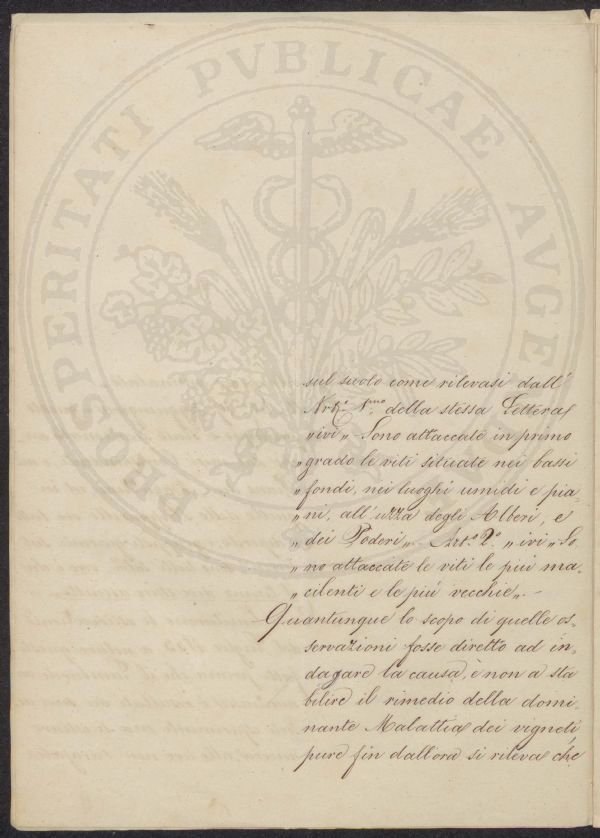 PROSPERITATI PVBLICAE AVGE
sul suolo come rilevasi dall'
Art.º 1.mo della stessa Lettera
"ivi" – Sono attaccate in primo
"grado le viti situate nei bassi
"fondi, nei luoghi umidi e pia-
"ni, all'uzza degli Alberi, e
"dei Poderi". – Art.º 2.º "ivi" So
"no attaccate le viti le più ma-
"cilenti e le più vecchie". –
Quantunque lo scopo di quelle os-
servazioni fosse diretto ad in-
dagare la causa, e non a sta
bilire il rimedio della domi-
nante Malattia dei vigneti
pure fin dall'ora si rileva che